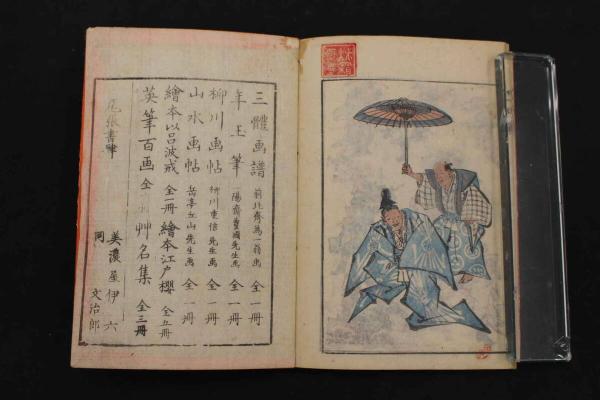 三體画譜 前北斎為一翁画 全一冊
年玉筆 一陽斎豊國先生画 全一冊
柳川画帖 柳川重信先生画 全一冊
山水画帖 岳亭丘山先生画 全一冊
繪本以呂波戒 全一冊 繪本江戸櫻 全五冊
英筆百画 全 艸名集 全三冊
尾張書肆 美濃屋伊六
同 文治郎